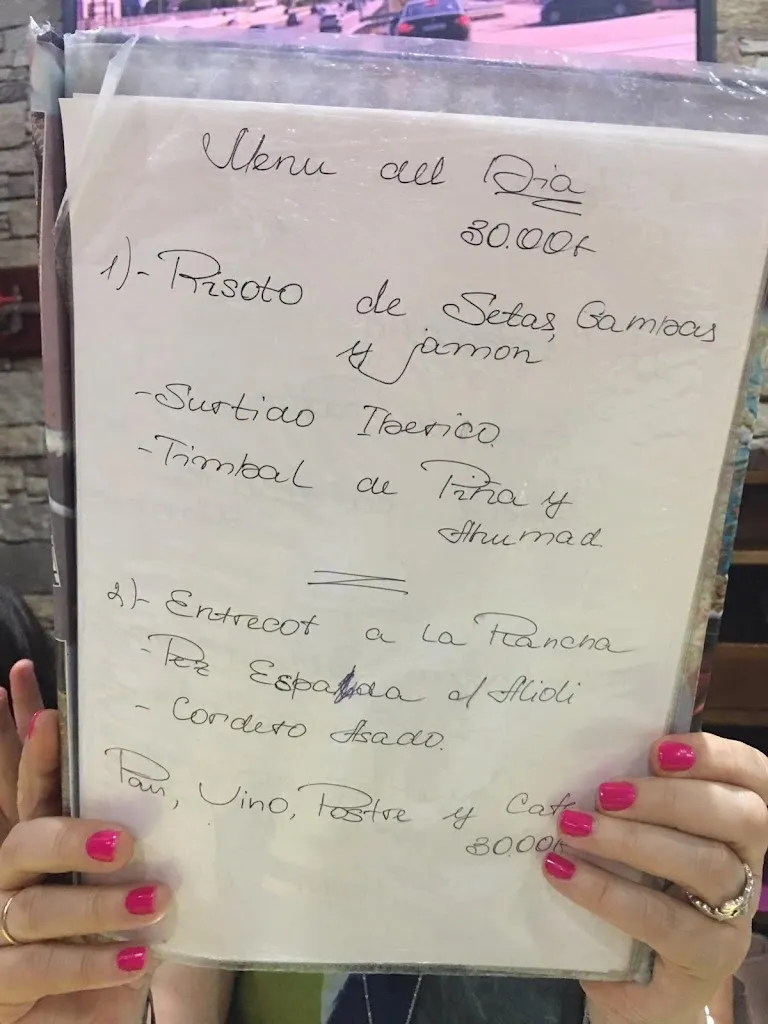 Menu del Dia
30.00€
1)- Risoto de Setas, Gambas
y jamon
- Surtido Iberico.
- Timbal de Piña y
Ahumad
2)- Entrecot a La Plancha
- Pez Espada al Alioli
- Cordero Asado.
Pan, Vino, Postre y Cafe
30.00€